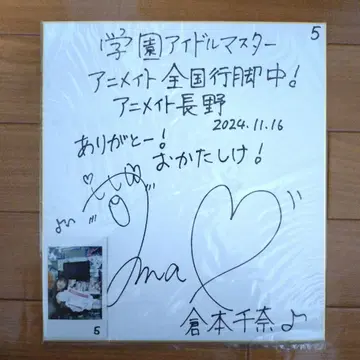 5
学園アイドルマスター
アニメイト全国行脚中!
アニメイト長野
2024.11.16
ありがとー!
おかたしけ!
倉本千奈♪
5